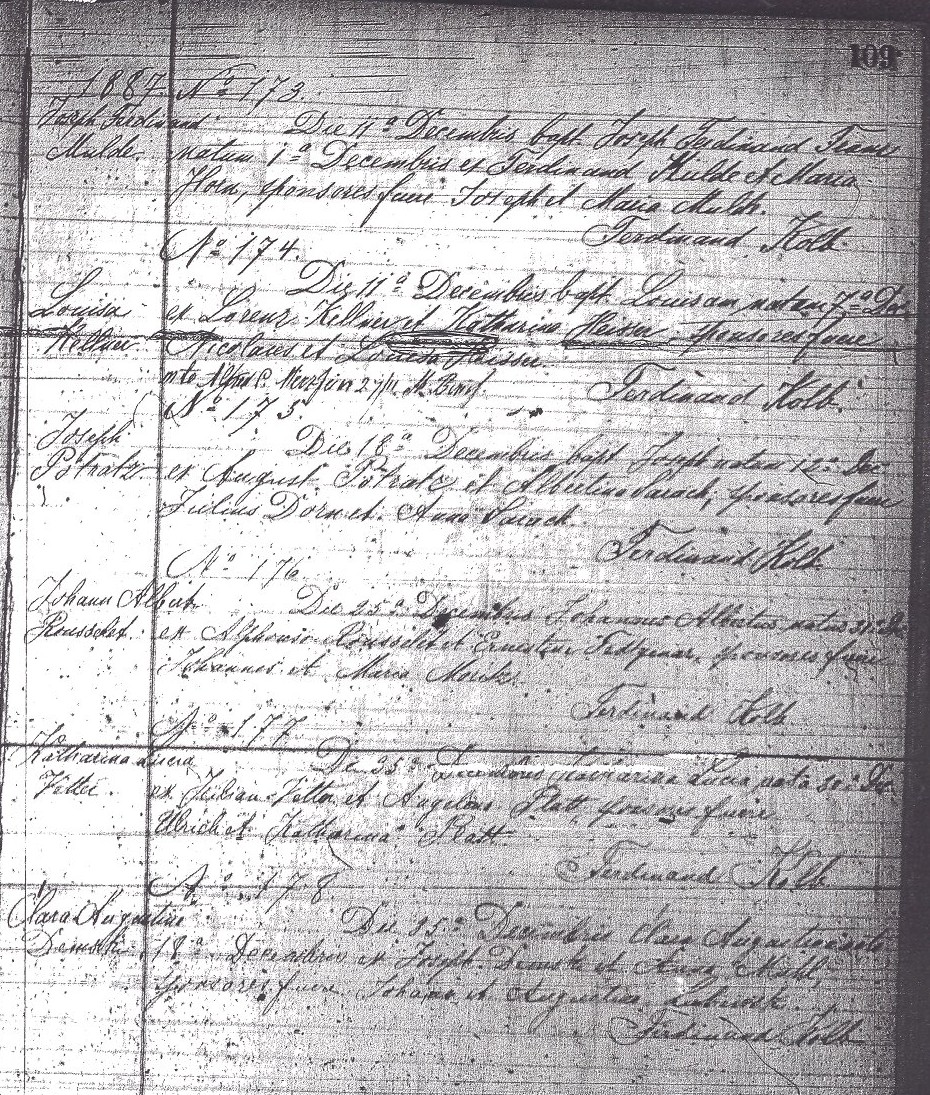 109
1887 No 173.
Joseph Ferdinand
Mulde.
Die 11a Decembris bapt. Joseph Ferdinand
natum 1a Decembris ex Ferdinand Mulde et Maria
Horn, sponsores fuere Joseph et Maria Mulde.
Ferdinand Kolb.
No 174.
Louisa
Kellner
Die 11a Decembris bapt. Louisam natam 7a Dec
ex Lorenz Kellner et Katharina Heisser sponsores fuere
Nicolaus et Louisa Heisser.
Ferdinand Kolb.
No 175.
Joseph
Potratz
Die 18a Decembris bapt Joseph natum 12a Dec
ex August Potratz et Albertina Sarach, sponsores fuere
Julius Dorn et Anna Sarach.
Ferdinand Kolb
No 176
Johann Albert
Rousselet.
Die 25a Decembris Johannes Albertus natus
ex Alphonso Rousselet et Ernestine sponsores fuere
Johannes et Maria Moritz.
Ferdinand Kolb
No 177
Katharina Lucia
Vetter.
Die 25a Decembris Katharina Lucia nata Dec
ex Kilian Vetter et Angelina Platt sponsores fuere
Ulrich et Katharina Platt.
Ferdinand Kolb
No 178
Clara Augustina
Demske
Die 25a Decembris Clara Augustina nata
18a Decembris ex Joseph Demske et Anna
sponsores fuere Johann et Augustina
Ferdinand Kolb